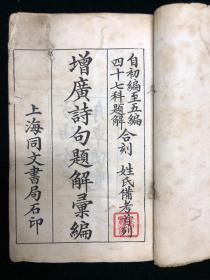 自初編至五編
四十七科題解合刻 姓氏備考首列
增廣詩句題解彙編
上海同文書局石印